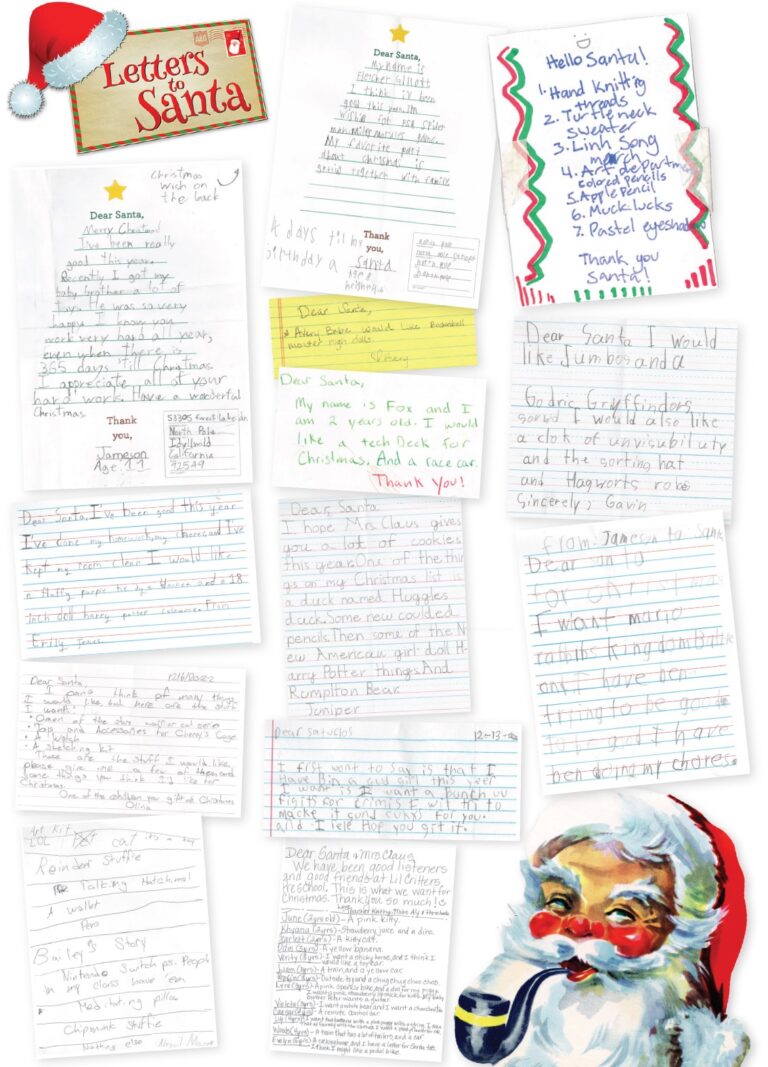 Letters
to
Santa
Dear Santa,
My name is
Fletcher Gillott
I think iv been
good this year. I'm
wishin for ps4 spider
man miles morales game.
My favorite part
about christmas is
being together with family
4 days till my
birthday
Thank
you,
Hello Santa!
1. Hand Knitting
threads
2. Turtleneck
sweater
3. Linh Song
merch
4. Art department
colored pencils
5. Apple pencil
6. Mucklucks
7. Pastel eyeshadow
Thank you
Santa!
Christmas
wish on
the back
Dear Santa,
Merry Christmas
I've been really
good this year.
Recently I got my
baby brother a lot of
toys. He was so very
happy. I know you
work very hard all year,
even when there is
365 days till Christmas
I appreciate all of your
hard work. Have a wonderful
Christmas
Thank
you,
Jameson
Age, 11
North Pole
Idyllwild
California
92549
Dear Santa,
Avery Babie would like
monster high dolls
Dear Santa,
My name is Fox and I
am 2 years old. I would
like a tech Deck for
Christmas. And a race car.
Thank You!
Dear Santa I would
like Jumbos and a
Godric Gryffindors
sord I would also like
a clok of unvisubiluty
and the sorting hat
and Hagworts robe
Sincerely, Gavin
Dear Santa, I've been good this year
I've done my homework, my chores, and I've
kept my room clean I would like
a fluffy purple tie dye and a 18
inch doll harry potter From
Emily Jones
Dear, Santa
I hope Mrs. Claus gives
you a lot of cookies
this year. One of the thin
gs on my Christmas list is
a duck named Huggles
duck. Some new coulded
pencils. Then some of the N
ew American girl doll H-
arry Potter things. And
Rumplton Bear.
Juniper
from: Jameson to: Santa
Dear santa
for christmas
I want mario
rabbits kingdom Batle
and I have ben
trying to be good
to be good I have
ben doing my chores.
Dear Santa,
12/6/2022
I can't think of many things
I would like but here are the stuff
I want:
• Omen of the stars warrior cat series
• Toys and Accessories for Cherry's Cage
• A watch
• A sketching kit
These are the stuff I would like,
please give me a few of them and
some things you think I'd like for
Christmas.
One of the children you gift at Christmas
Olina
Dear satuclos
12-13-22
I first want to say is that I
Have Bin a gud this yeer
I want is I want a punch uv
I wil tri to
macke it gund for you.
and I rele Hop you git it.
Art Kit
LOL cat
Reinder Stuffie
Talking Hatchimal
A wallet
Pens
Bailey's Story
Nintendo Switch ps. People
in my class have 'em
Meditating pillow
Chipmunk Stuffie
Nothing else
Dear Santa & Mrs. Claus
We have been good listeners
and good friends at Lil Critters
Preschool. This is what we want for
Christmas. Thank you so much!
Love,
June - A pink kitty.
- Strawberry juice and a dino.
Scarlett - A kitty cat.
- A yellow banana.
Verity - I want a sticky horse, and I think I
would like a toy ear.
- A train, and a yellow car.
Violet - I want a white bear and I want a
- A remote control car.
- A train that has a lot of trailers, and a car.
Evelyn - and I have a letter for Santa too.
I think I might like a pedal bike.